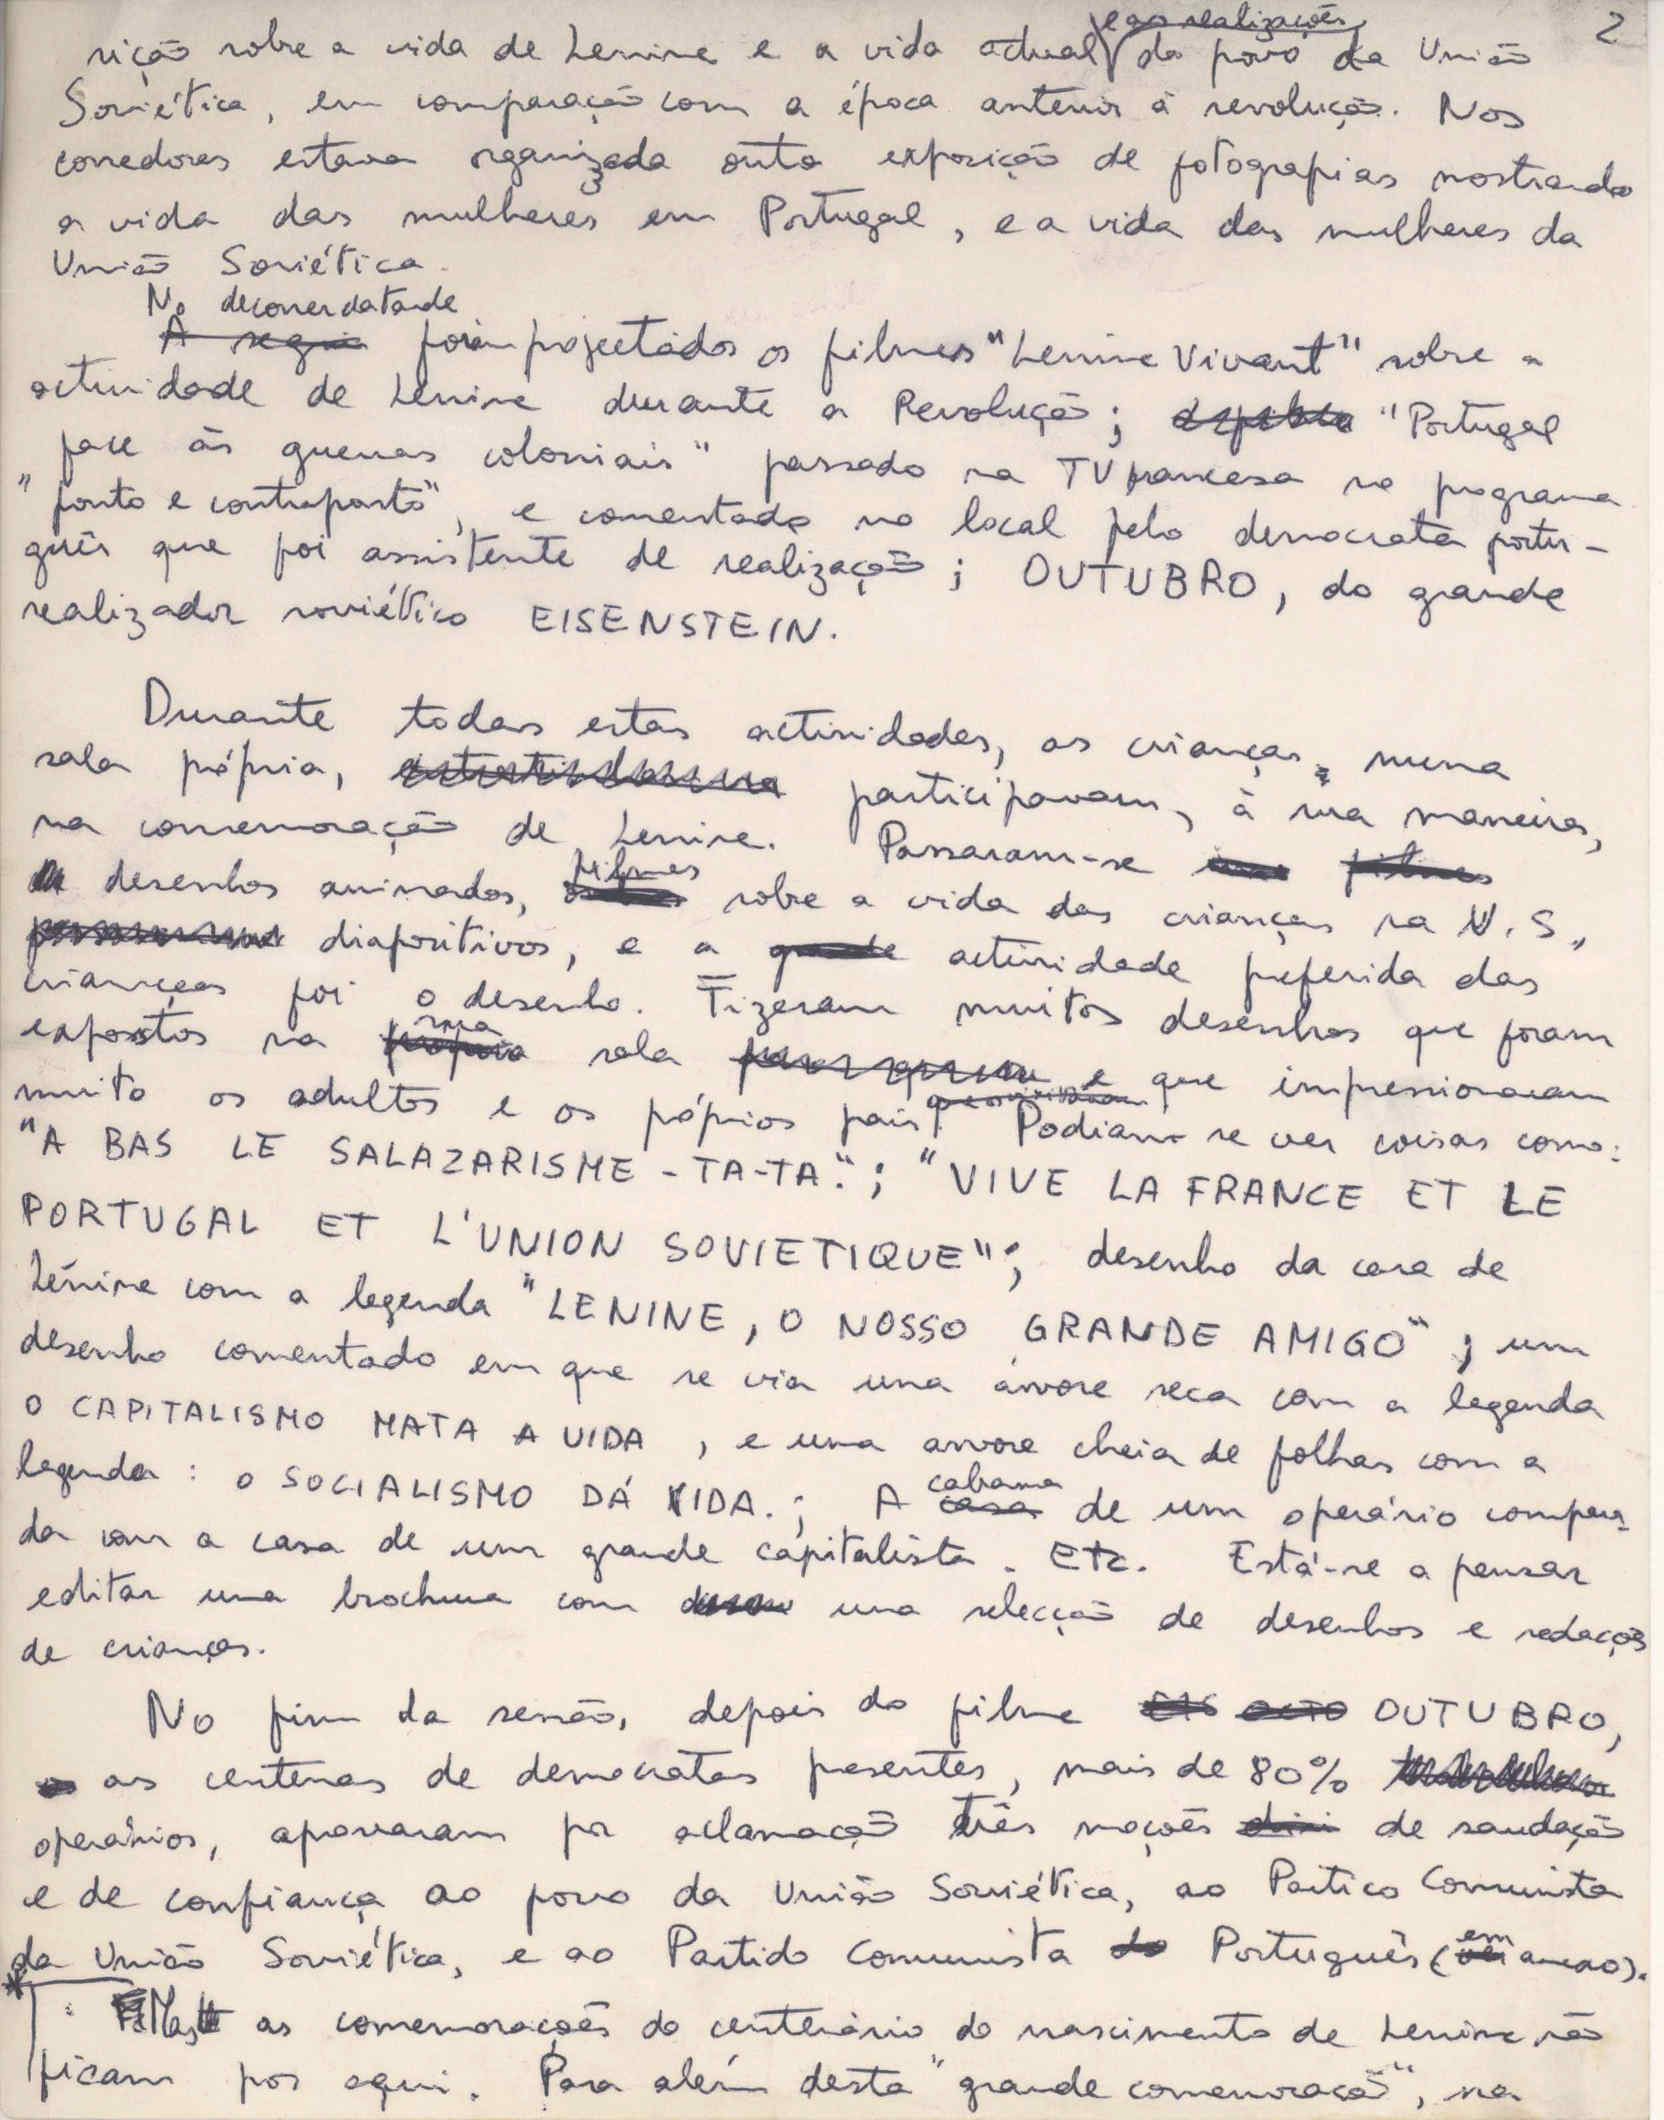 2
e as realizações
sição sobre a vida de Lenine e a vida actual do povo da União
Soviética, em comparação com a época anterior à revolução. Nos
corredores estava organizada outra exposição de fotografias mostrando
a vida das mulheres em Portugal, e a vida das mulheres da
União Soviética.
No decorrer da tarde
A seguir foram projectados os filmes "Lenine Vivant" sobre a
actividade de Lenine durante a Revolução; "Portugal
face às guerras coloniais" passado na TV francesa no programa
"ponto e contraponto", e comentado no local pelo democrata portu-
guês que foi assistente de realização; OUTUBRO, do grande
realizador soviético EISENSTEIN.
Durante todas estas actividades, as crianças, numa
sala própria, participavam, à sua maneira,
na comemoração de Lenine. Passaram-se filmes
filmes
desenhos animados, sobre a vida das crianças na U.S.,
diapositivos, e a actividade preferida das
crianças foi o desenho. Fizeram muitos desenhos que foram
sua
expostos na própria sala e que impressionaram
muito os adultos e os próprios pais. Podiam-se ver coisas como:
"A BAS LE SALAZARISME - TA-TA."; "VIVE LA FRANCE ET LE
PORTUGAL ET L'UNION SOVIETIQUE"; desenho da cara de
Lénine com a legenda "LENINE, O NOSSO GRANDE AMIGO"; um
desenho comentado em que se via uma árvore seca com a legenda
O CAPITALISMO MATA A VIDA, e uma arvore cheia de folhas com a
legenda: O SOCIALISMO DÁ VIDA.; A
cabana
casa de um operário compara-
da com a casa de um grande capitalista. Etc. Está-se a pensar
editar uma brochura com uma selecção de desenhos e redacções
de crianças.
No fim da sessão, depois do filme OUTUBRO,
as centenas de democratas presentes, mais de 80%
operários, aprovaram por aclamação três moções de saudação
e de confiança ao povo da União Soviética, ao Partico Comunista
da União Soviética, e ao Partido Comunista do Português (em anexo).
* Mas as comemorações do centenário do nascimento de Lenine não
ficam por aqui. Para além desta "grande comemoração", na